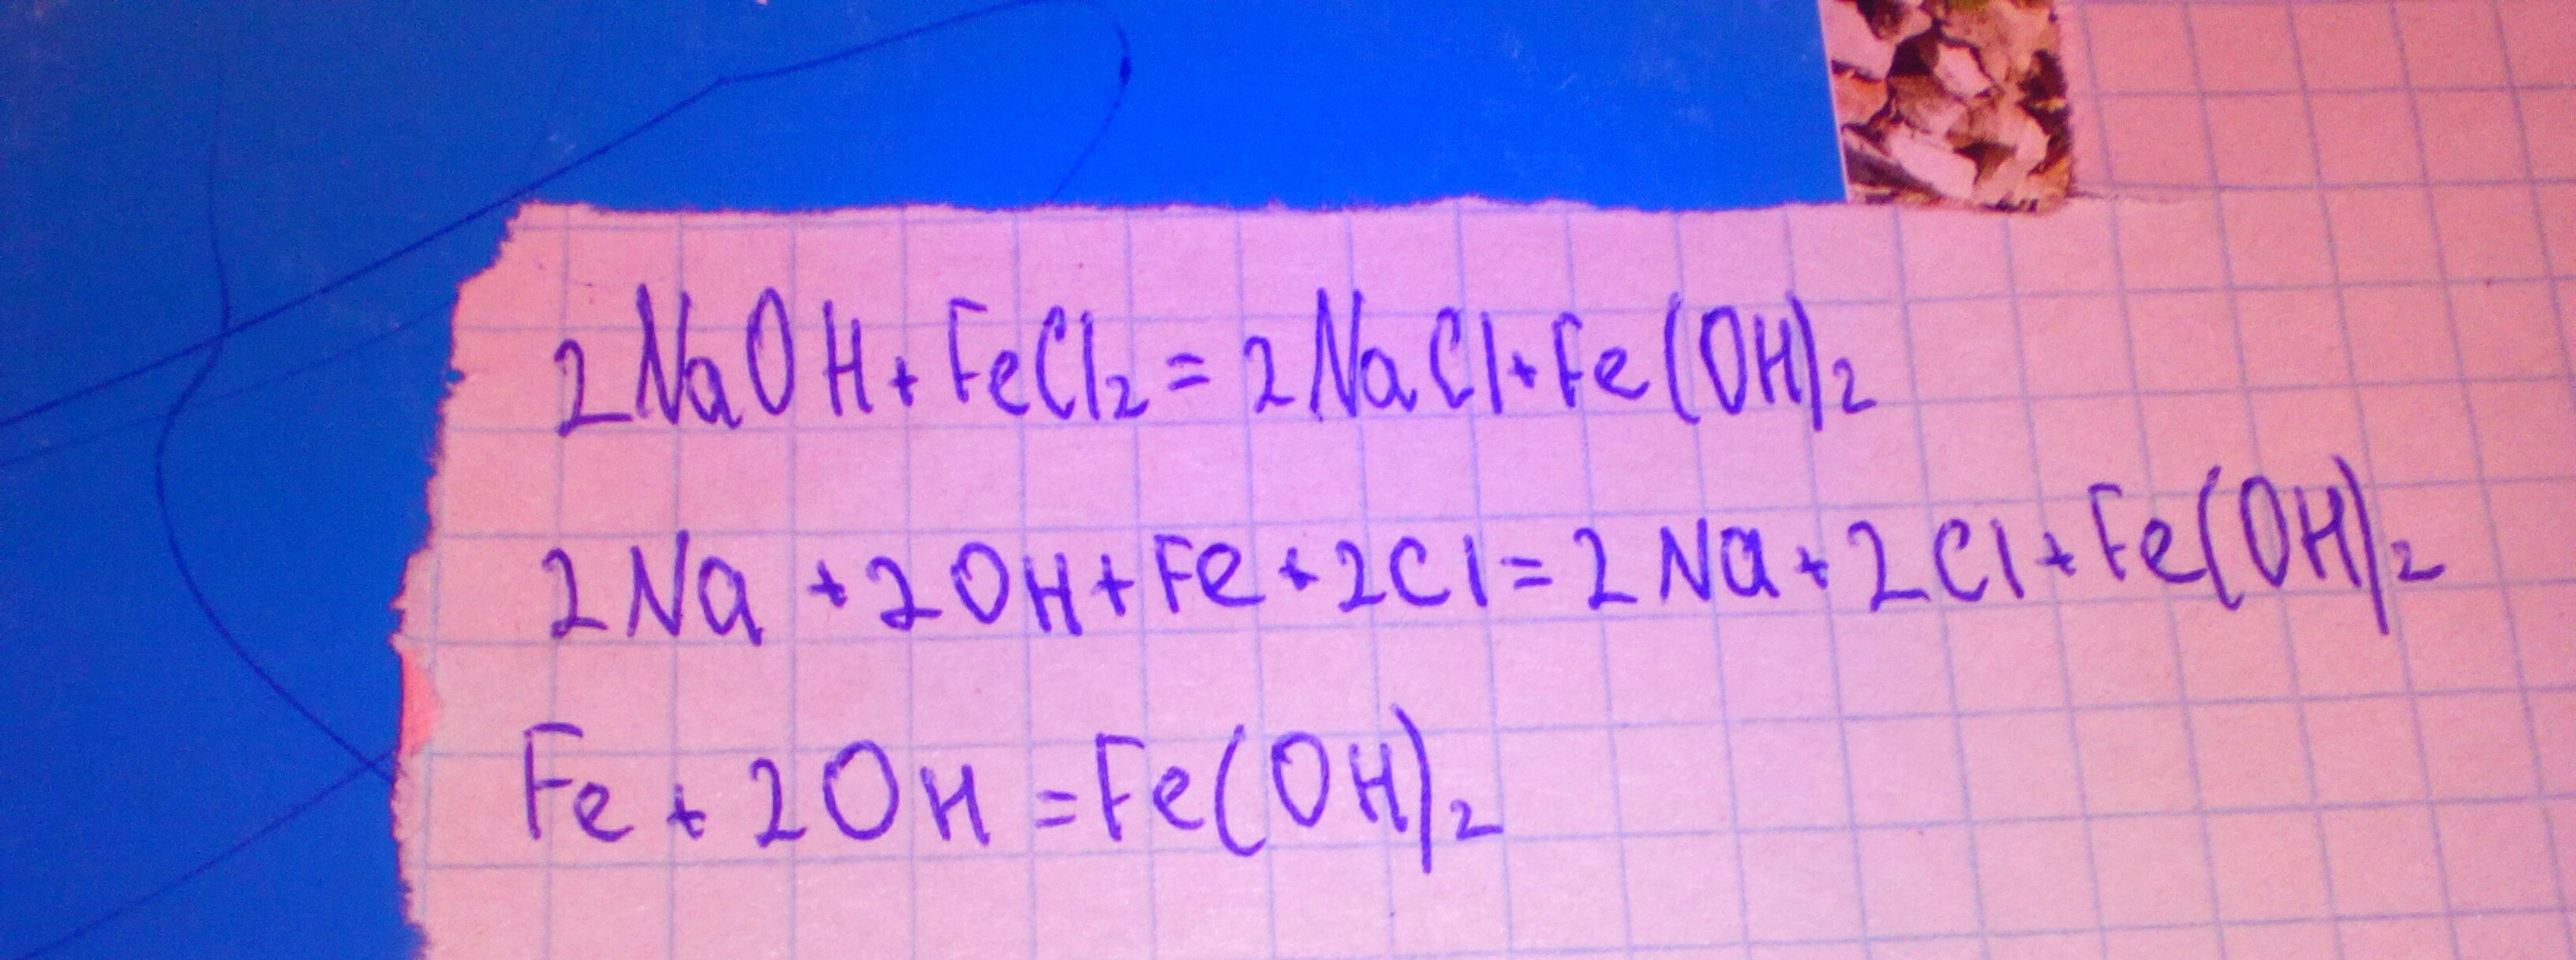 2NaOH+FeCl₂=2NaCl+Fe(OH)₂
2Na+2OH+Fe+2Cl=2Na+2Cl+Fe(OH)₂
Fe+2OH=Fe(OH)₂